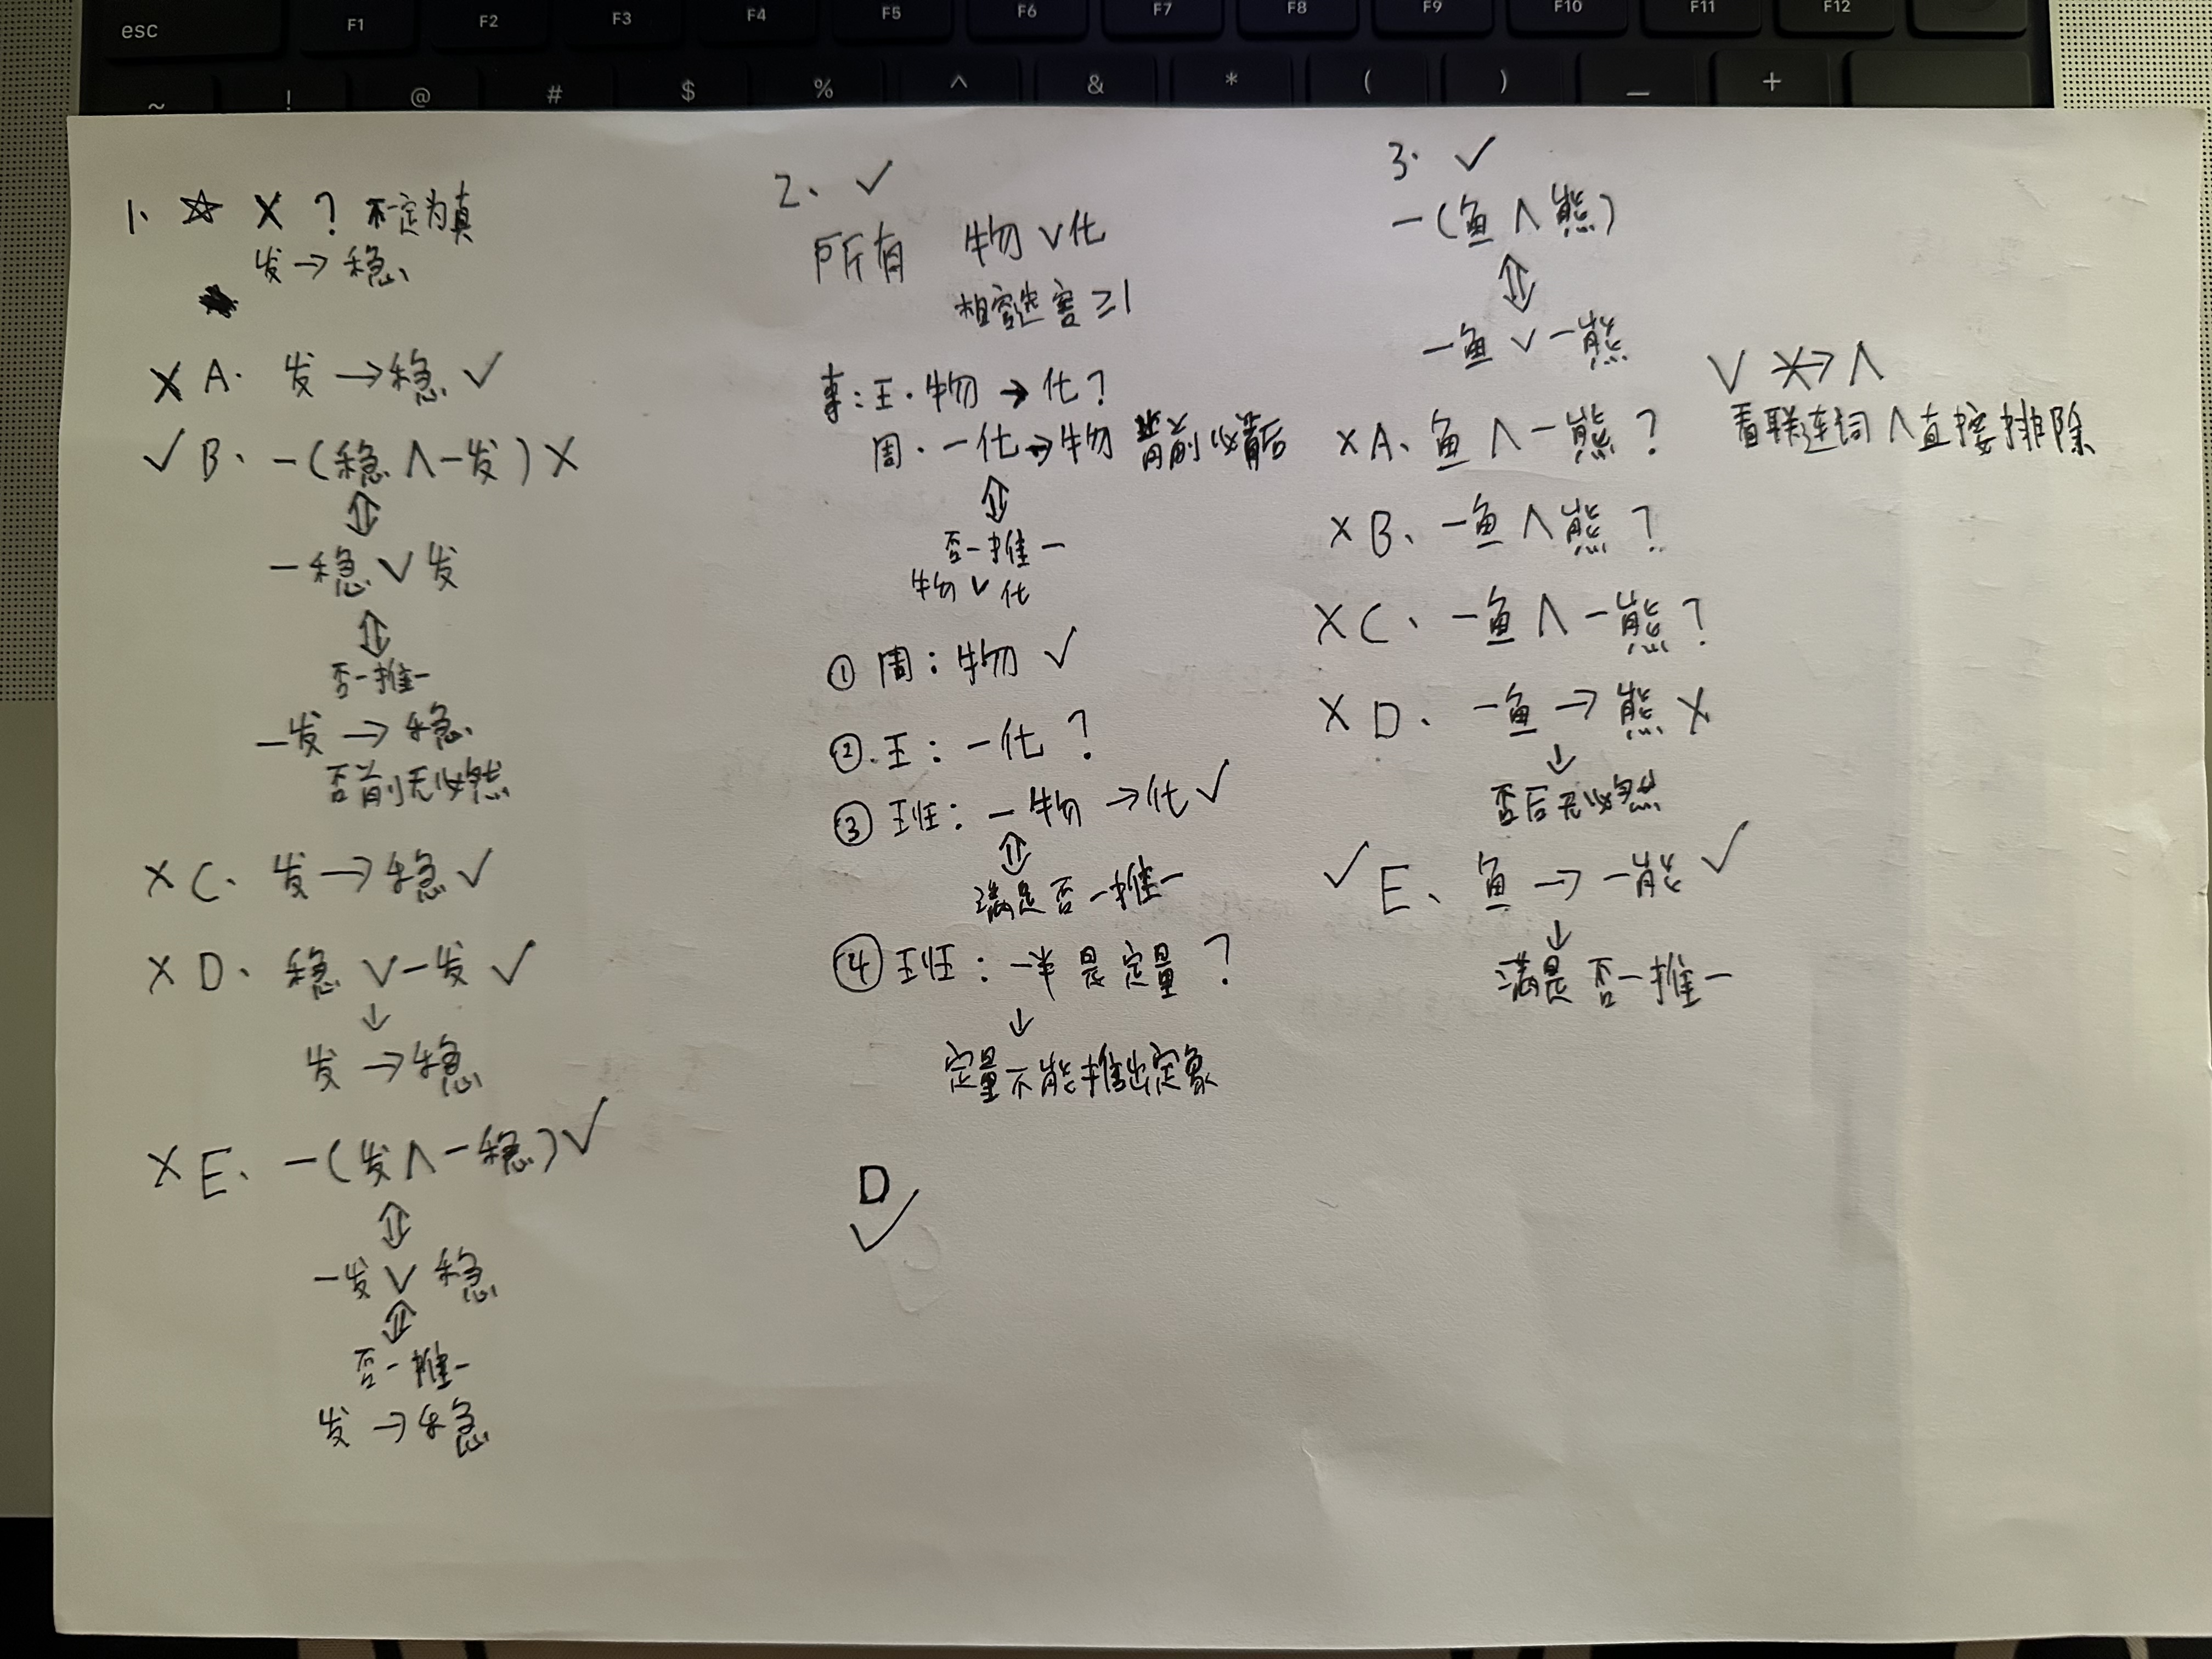 esc F1 F2 F3 F4 F5 F6 F7 F8 F9 F10 F11 F12
~ ! @ # $ % ^ & * ( ) _ +
1. ☆ X ? 不一定为真
发→稳
X A. 发→稳 ✓
✓ B. -(稳∧-发) X
⇕
-稳∨发
⇕
否一推一
-发→稳
否前无必然
X C. 发→稳 ✓
X D. 稳∨-发 ✓
↓
发→稳
X E. -(发∧-稳) ✓
⇕
-发∨稳
⇕
否一推一
发→稳
2. ✓
所有 物∨化
相容选言≥1
事:王.物→化?
周.-化→物 肯前必肯后
⇕
否一推一
物∨化
① 周:物 ✓
②.王:-化?
③ 班:-物→化 ✓
⇕
满足否一推一
④ 班:一半是定量?
↓
定量不能推出定象
D
✓
3. ✓
-(鱼∧熊)
⇕
-鱼∨-熊
X A、鱼∧-熊?
X B、-鱼∧熊?
X C、-鱼∧-熊?
X D. -鱼→熊 X
↓
否后无必然
✓ E、鱼→-能 ✓
↓
满足否一推一
∨ -X> ∧
看联连词∧直接排除